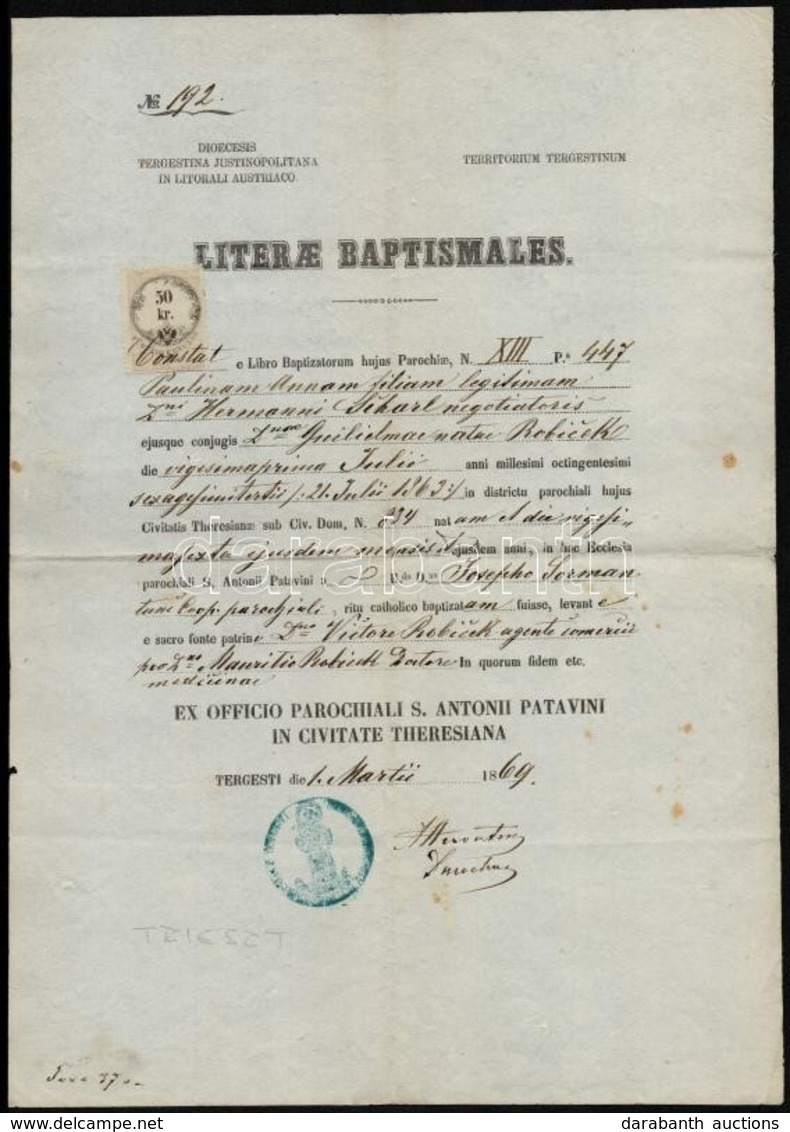 № 192.
DIOECESIS
TERGESTINA JUSTINOPOLITANA
IN LITORALI AUSTRIACO.
TERRITORIUM TERGESTINUM
LITERÆ BAPTISMALES.
50
kr.
Constat e Libro Baptizatorum hujus Parochiæ, N. XIII P.ª 447
Paulinam Annam filiam legitimam
Dni Hermanni Scharl negotiatoris
ejusque conjugis Dnae Guilielmae natae Robiček
die vigesimaprima Julii anni millesimi octingentesimi
sexagesimitertii /: 21. Julii 1863 :/ in districtu parochiali hujus
Civitatis Theresianæ sub Civ. Dom. N. 834 natam et die vigesi-
masexta ejusdem mensis et ejusdem anni, in hac Ecclesia
parochiali S. Antonii Patavini a Josepho Sorman
Coop. parochiali, ritu catholico baptizatam fuisse, levante
e sacro fonte patrino Dno Victore Robiček agente comercii
pro Dno Mauritio Robiček Doctore In quorum fidem etc.
medicinae
EX OFFICIO PAROCHIALI S. ANTONII PATAVINI
IN CIVITATE THERESIANA
TERGESTI die 1. Martii 1869.
Parochus
TRIESZT
darabanth
darabanth auctions